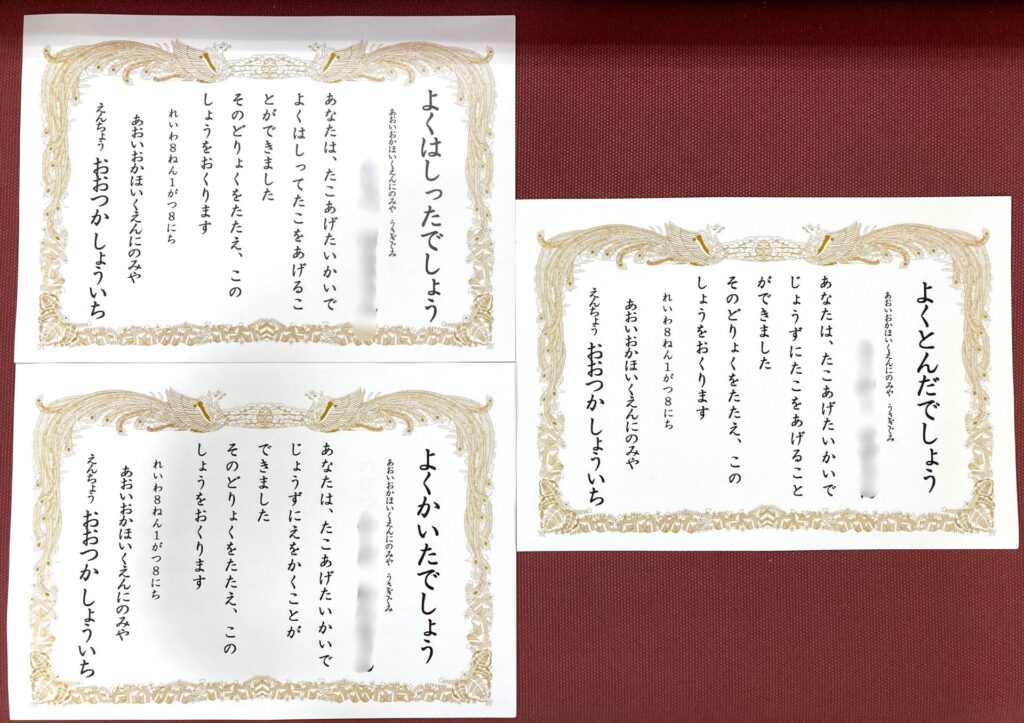 よくはしったでしょう
あおいおかほいくえんにのみや うさぎぐみ
あなたは、たこあげたいかいで
よくはしってたこをあげるこ
とができました
そのどりょくをたたえ、この
しょうをおくります
れいわ8ねん1がつ8にち
あおいおかほいくえんにのみや
えんちょう おおつか しょういち
よくかいたでしょう
あおいおかほいくえんにのみや うさぎぐみ
あなたは、たこあげたいかいで
じょうずにえをかくことが
できました
そのどりょくをたたえ、この
しょうをおくります
れいわ8ねん1がつ8にち
あおいおかほいくえんにのみや
えんちょう おおつか しょういち
よくとんだでしょう
あおいおかほいくえんにのみや うさぎぐみ
あなたは、たこあげたいかいで
じょうずにたこをあげること
ができました
そのどりょくをたたえ、この
しょうをおくります
れいわ8ねん1がつ8にち
あおいおかほいくえんにのみや
えんちょう おおつか しょういち